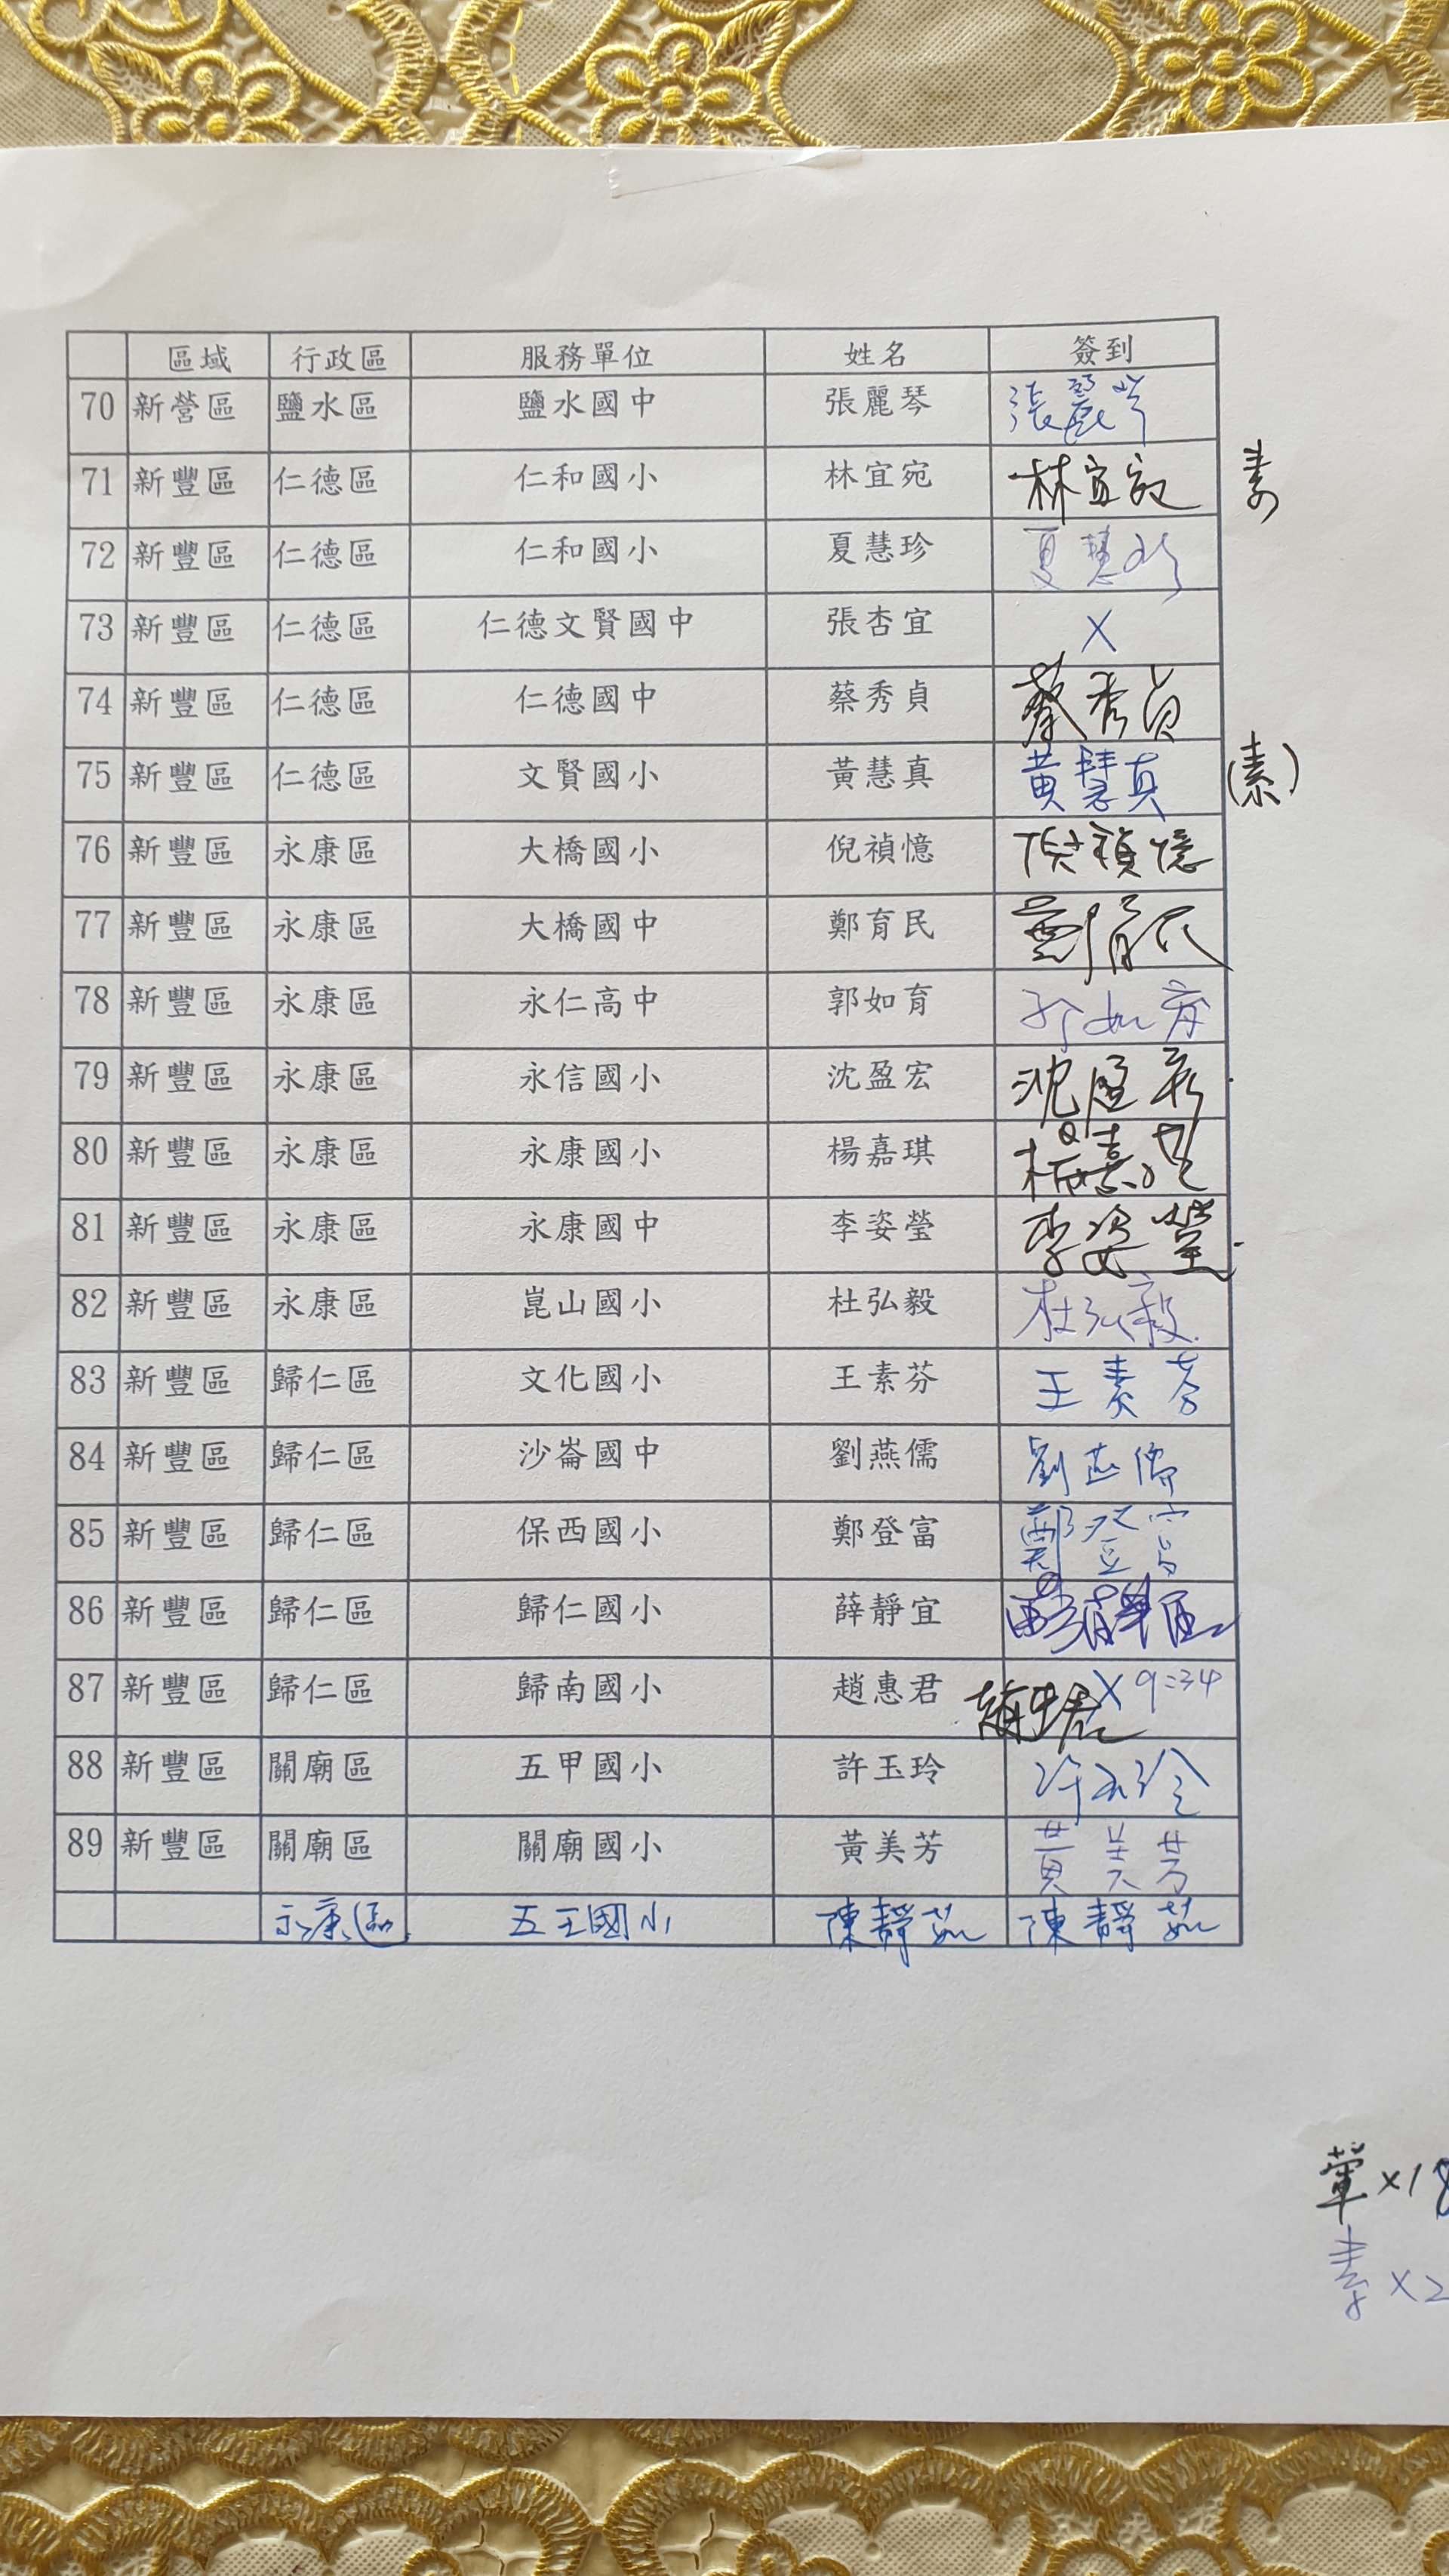 區域 行政區 服務單位 姓名 簽到
70 新營區 鹽水區 鹽水國中 張麗琴 張麗琴
71 新豐區 仁德區 仁和國小 林宜宛 林宜宛 素
72 新豐區 仁德區 仁和國小 夏慧珍 夏慧珍
73 新豐區 仁德區 仁德文賢國中 張杏宜 X
74 新豐區 仁德區 仁德國中 蔡秀貞 蔡秀貞
75 新豐區 仁德區 文賢國小 黃慧真 黃慧真 (素)
76 新豐區 永康區 大橋國小 倪禎憶 倪禎憶
77 新豐區 永康區 大橋國中 鄭育民 鄭育民
78 新豐區 永康區 永仁高中 郭如育 郭如育
79 新豐區 永康區 永信國小 沈盈宏 沈盈宏
80 新豐區 永康區 永康國小 楊嘉琪 楊嘉琪
81 新豐區 永康區 永康國中 李姿瑩 李姿瑩
82 新豐區 永康區 崑山國小 杜弘毅 杜弘毅
83 新豐區 歸仁區 文化國小 王素芬 王素芬
84 新豐區 歸仁區 沙崙國中 劉燕儒 劉燕儒
85 新豐區 歸仁區 保西國小 鄭登富 鄭登富
86 新豐區 歸仁區 歸仁國小 薛靜宜 薛靜宜
87 新豐區 歸仁區 歸南國小 趙惠君 趙惠君 X 9:34
88 新豐區 關廟區 五甲國小 許玉玲 許玉玲
89 新豐區 關廟區 關廟國小 黃美芳 黃美芳
永康區 五王國小 陳靜茹 陳靜茹
葷×18
素×2